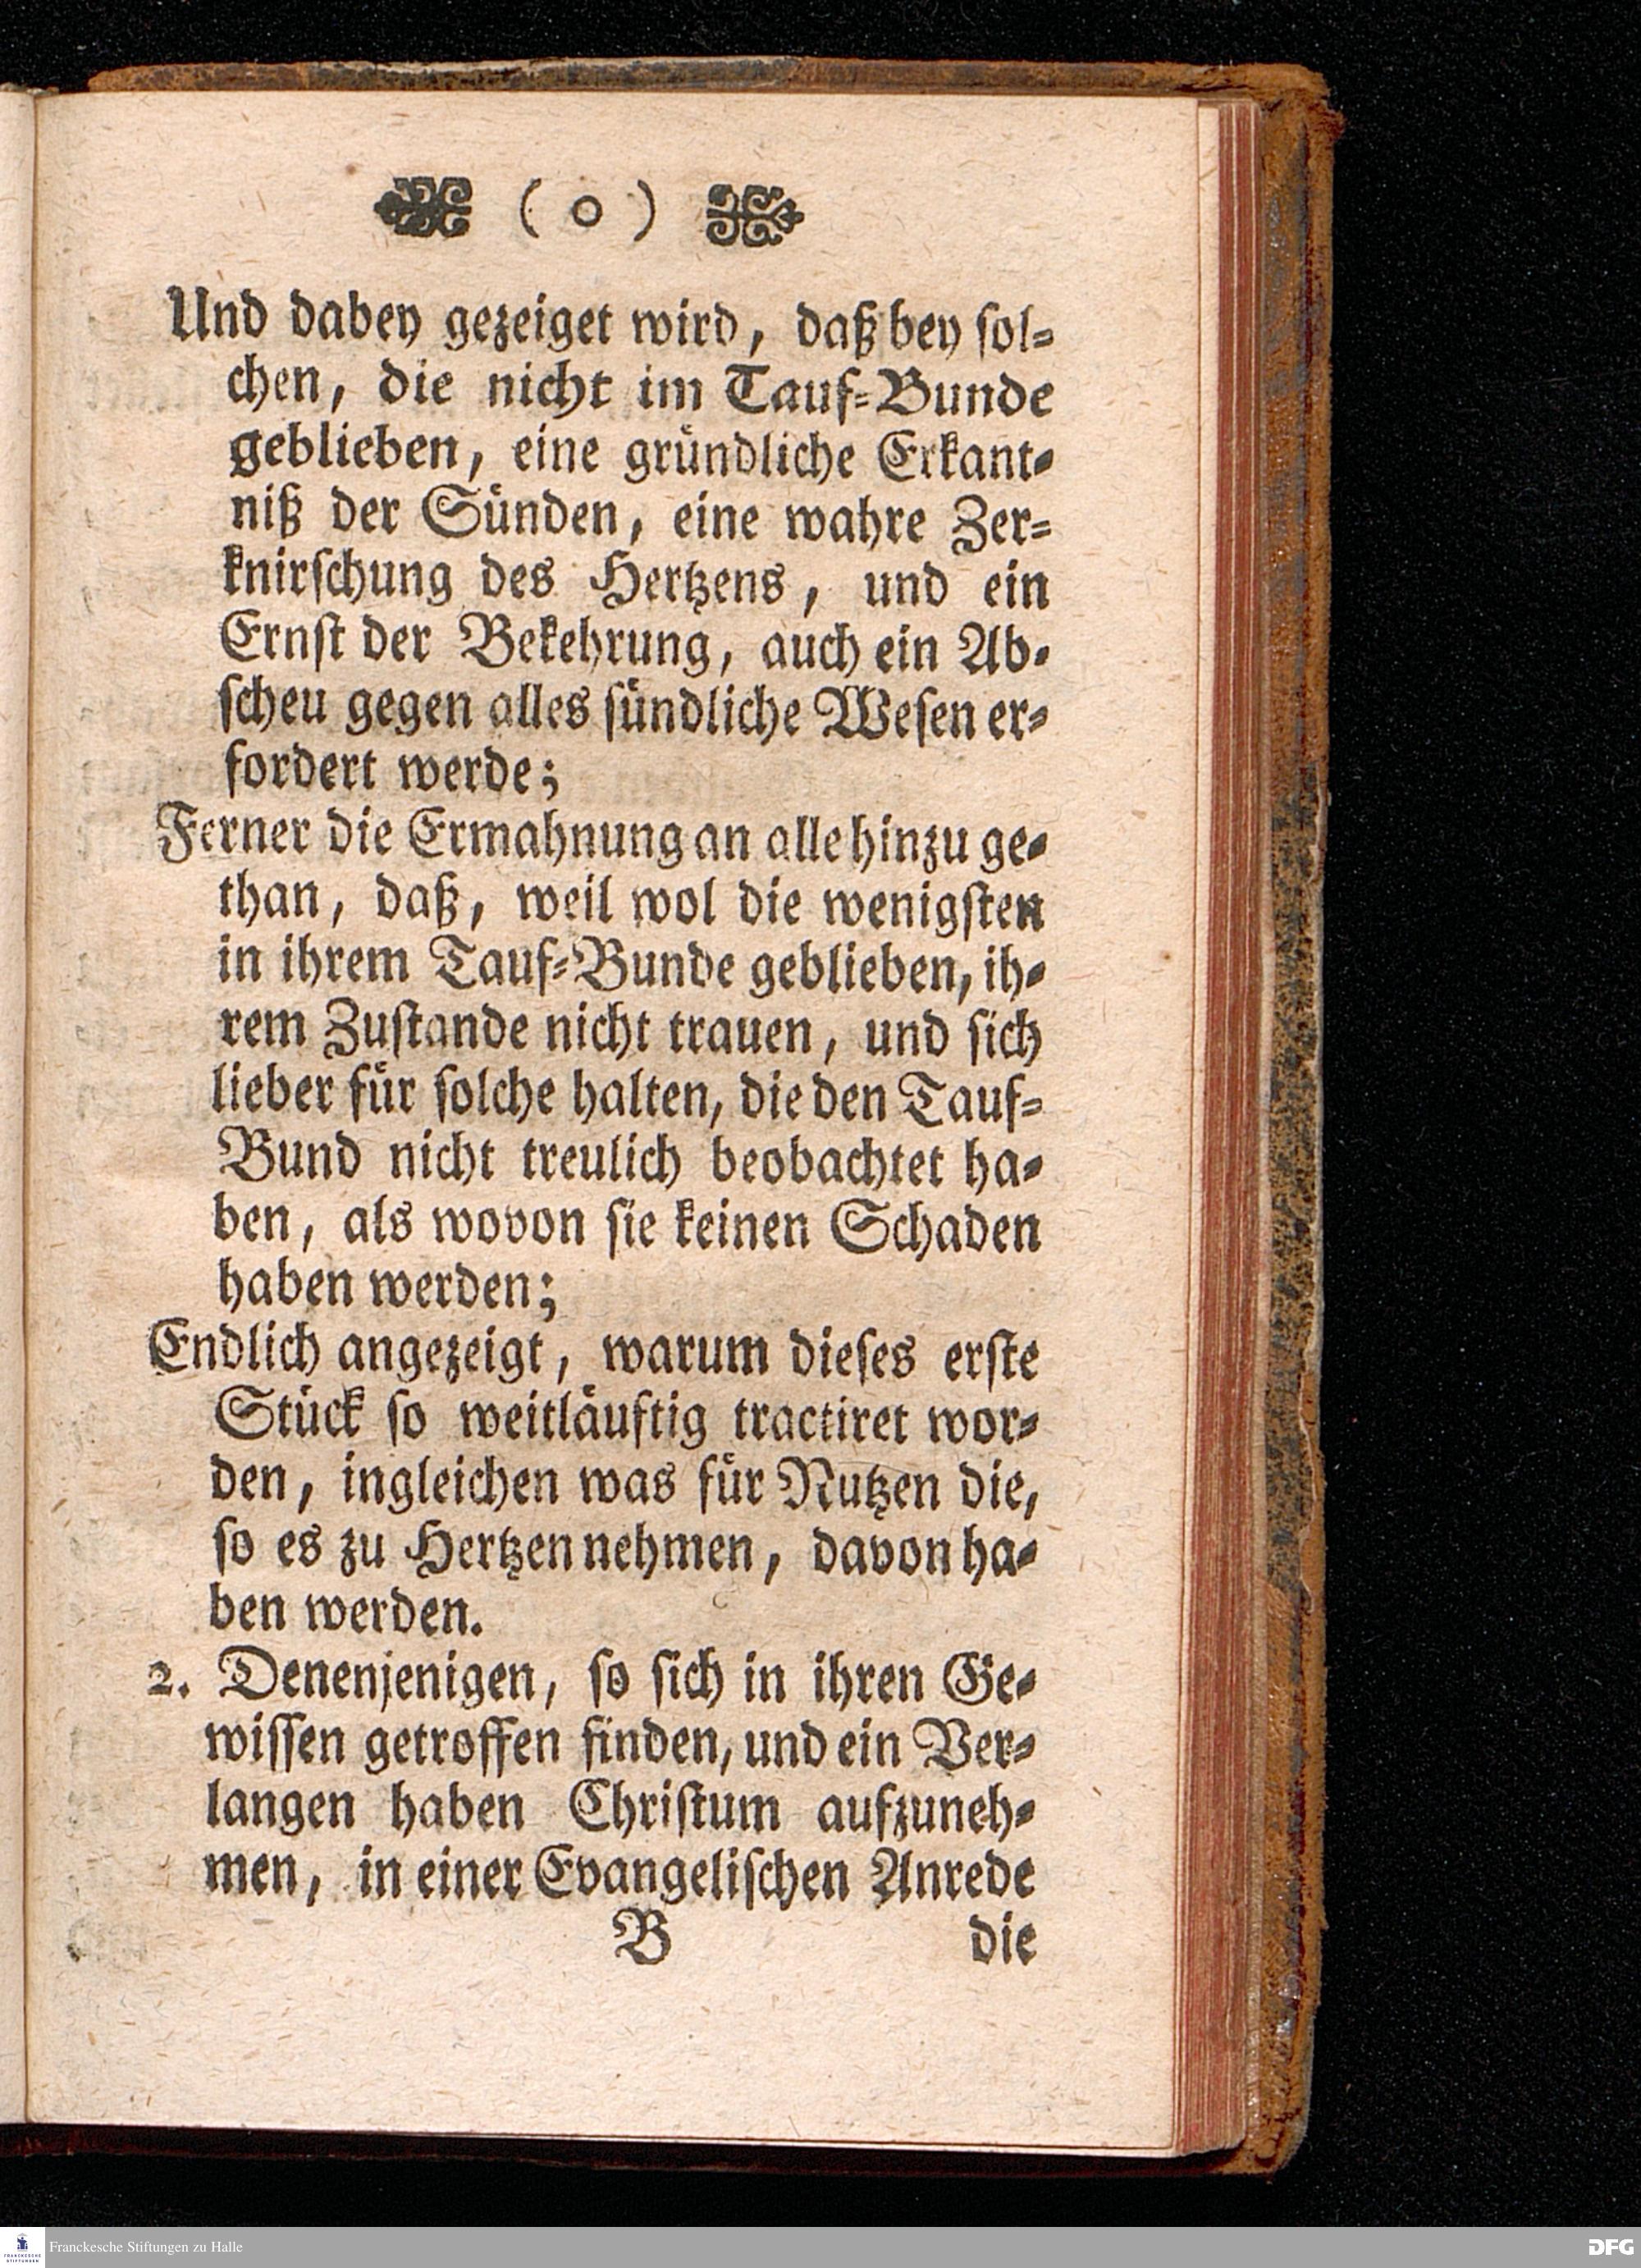 ( o )
Und dabey gezeiget wird, daß bey ſol=
chen, die nicht im Tauf=Bunde
geblieben, eine gründliche Erkant=
niß der Sünden, eine wahre Zer=
knirſchung des Hertzens, und ein
Ernſt der Bekehrung, auch ein Ab=
ſcheu gegen alles ſündliche Weſen er=
fordert werde;
Ferner die Ermahnung an alle hinzu ge=
than, daß, weil wol die wenigſten
in ihrem Tauf=Bunde geblieben, ih=
rem Zuſtande nicht trauen, und ſich
lieber für ſolche halten, die den Tauf=
Bund nicht treulich beobachtet ha=
ben, als wovon ſie keinen Schaden
haben werden;
Endlich angezeigt, warum dieſes erſte
Stück ſo weitläuftig tractiret wor=
den, ingleichen was für Nutzen die,
ſo es zu Hertzen nehmen, davon ha=
ben werden.
2. Denenjenigen, ſo ſich in ihren Ge=
wiſſen getroffen finden, und ein Ver=
langen haben Chriſtum aufzuneh=
men, in einer Evangeliſchen Anrede
B die
FRANCKESCHE STIFTUNGEN
Franckesche Stiftungen zu Halle
DFG